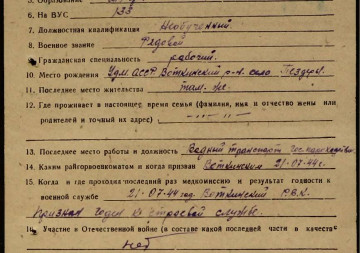 5. Образование
6. На ВУС 133
7. Должностная квалификация Необученный
8. Военное звание Рядовой
9. Гражданская специальность рабочий
10. Место рождения Удм. АССР Воткинский р-н. село
11. Последнее место жительства там же
12. Где проживает в настоящее время семья (фамилия, имя и отчество жены или
родителей и точный их адрес) — „ — „ —
13. Последнее место работы и должность Водный транспорт
14. Каким райгорвоенкоматом и когда призван Воткинским 21-07-44 г.
15. Когда и где проходил последний раз медкомиссию и результат годности к
военной службе 21-07-44 год Воткинский Р.В.К.
признан годен к строевой службе.
16. Участие в Отечественной войне (в составе какой последней части в качестве
нет